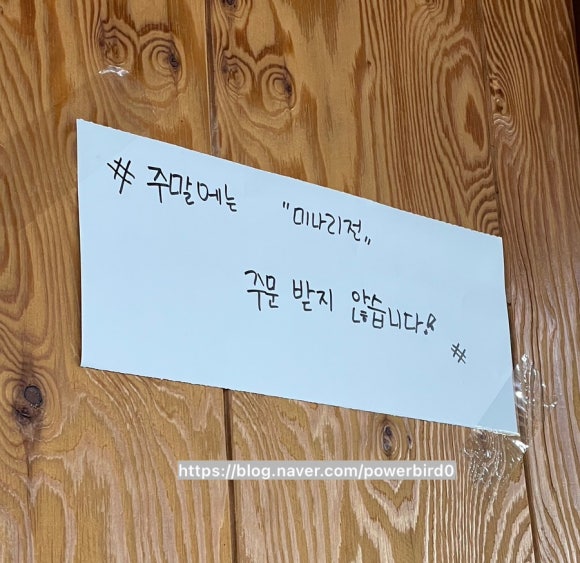 # 주말에는 "미나리전"
주문 받지 않습니다!
#
https://blog.naver.com/powerbird0